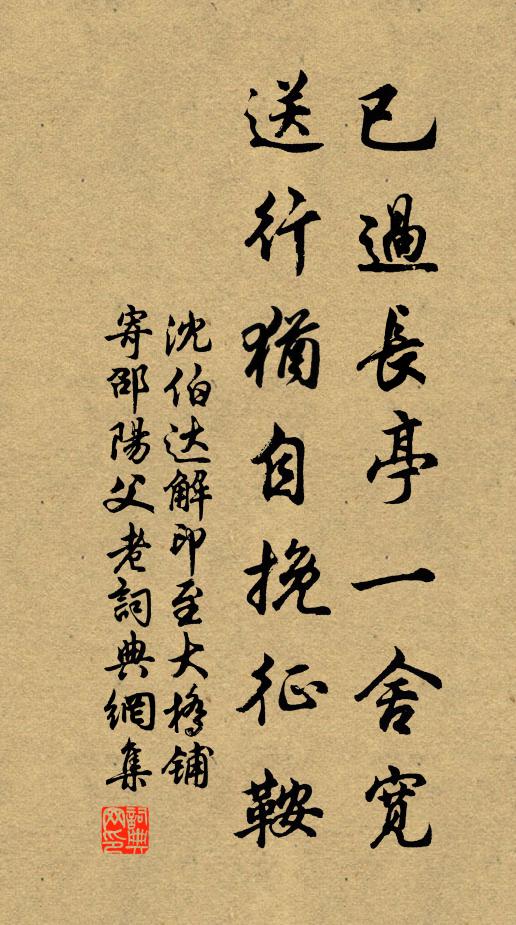 已過長亭一舍寬
送行猶自挽征鞍
沈伯达解印至大橋铺
寄邵陽父老詞典網集
詞典
网印